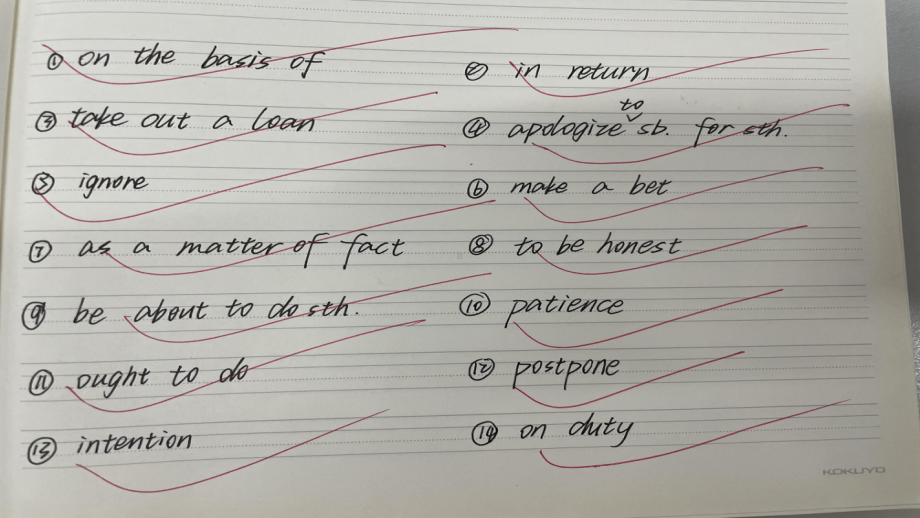 ① on the basis of
② in return
③ take out a loan
④ apologize to sb. for sth.
⑤ ignore
⑥ make a bet
⑦ as a matter of fact
⑧ to be honest
⑨ be about to do sth.
⑩ patience
⑪ ought to do
⑫ postpone
⑬ intention
⑭ on duty
KOKUYO